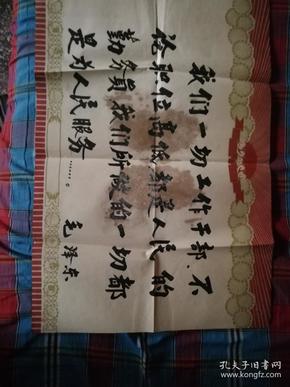 我们一切工作干部、不
论职位高低都是人民的
勤务员 我们所做的一切都
是为人民服务……。
毛泽东
孔夫子旧书网